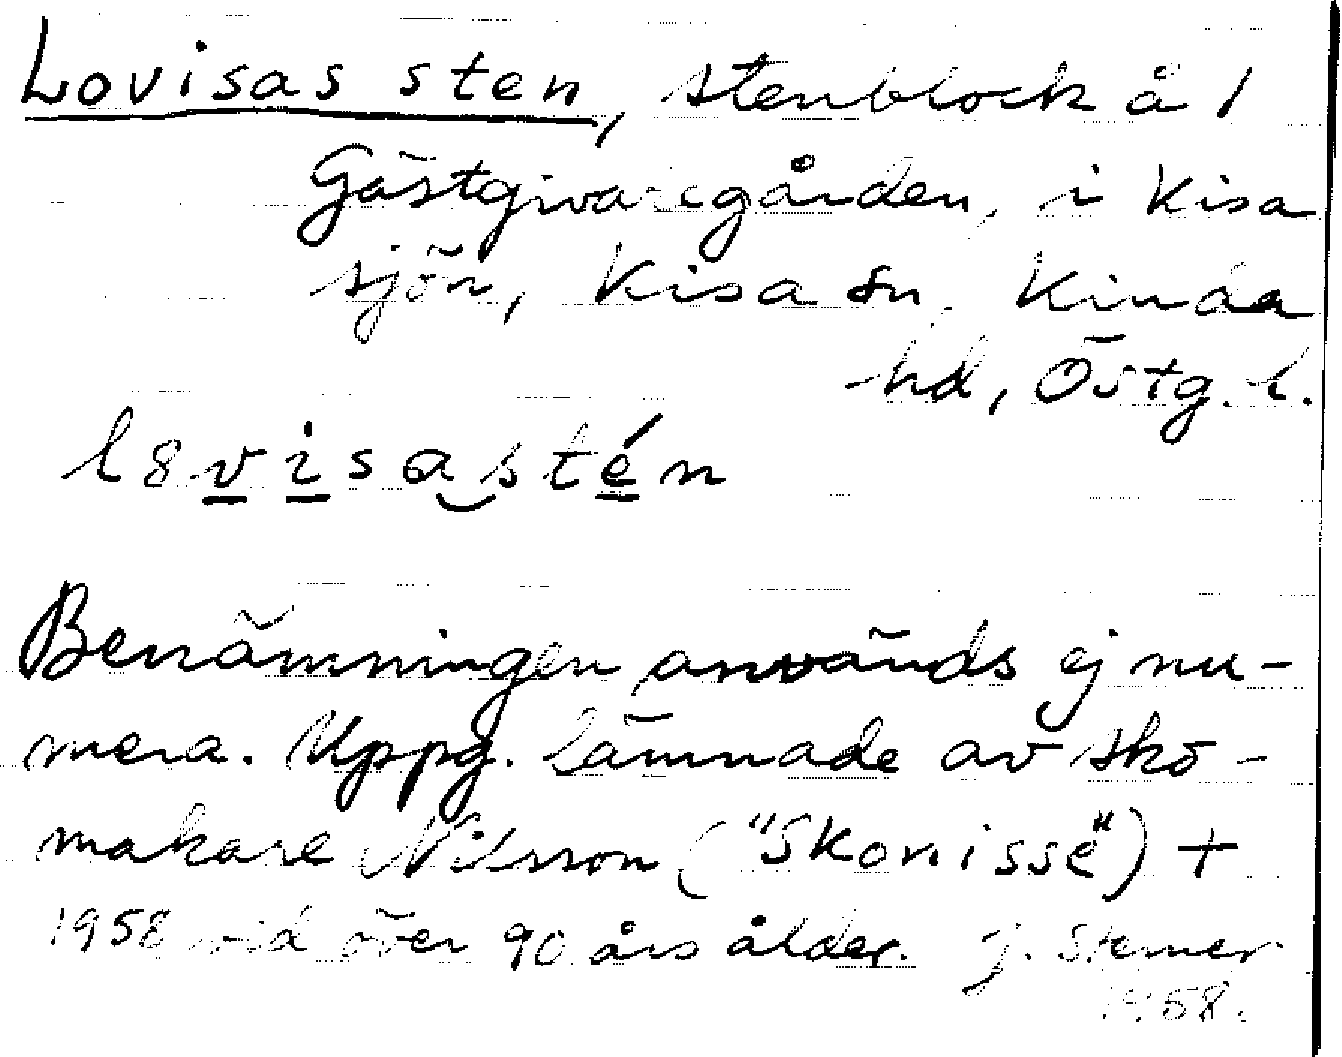 Lovisas sten, stenblock å 1
Gästgivaregården, i Kisa
sjön, Kisa sn. Kinda
hd, Östg. l.
l8visastén
Benämningen används ej nu-
mera. Uppg. lämnade av sko-
makare Nilsson ("Skonisse") +
1958 vid över 90 års ålder. J. Sterner
1958.